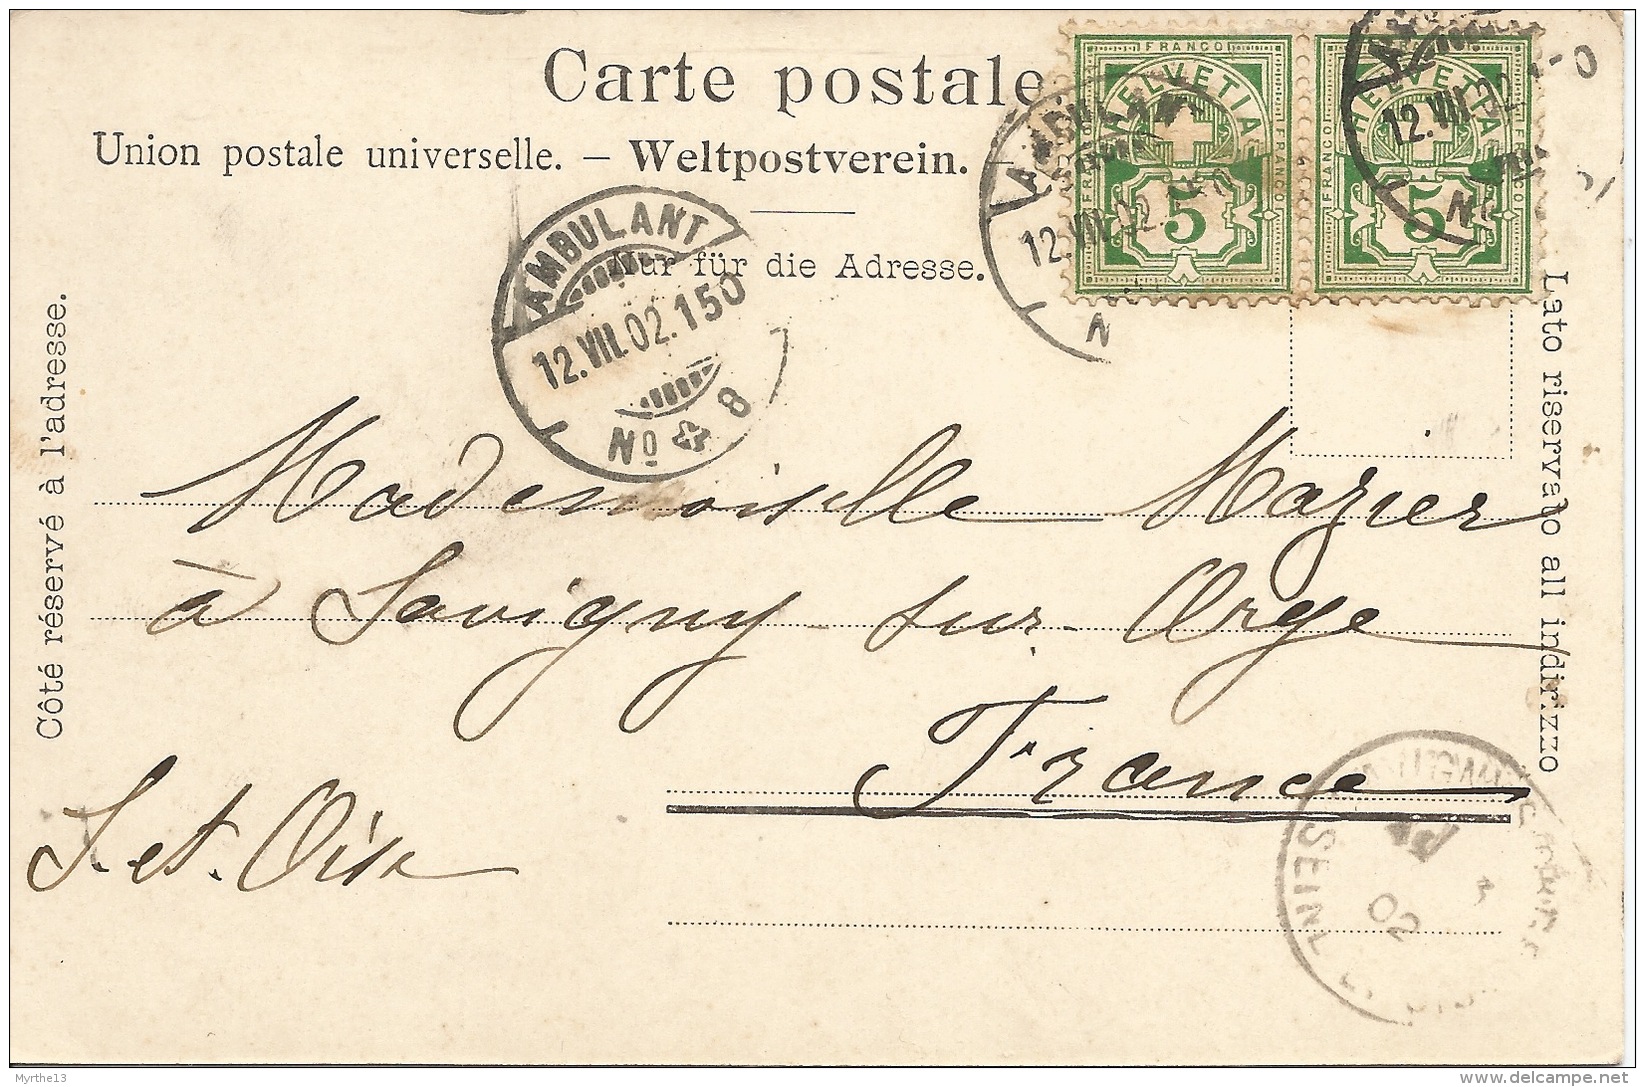 Carte postale
Union postale universelle. – Weltpostverein. –
Nur für die Adresse.
Côté réservé à l'adresse.
Lato riservato all indirizzo
FRANCO
HELVETIA
FRANCO
5
FRANCO
HELVETIA
FRANCO
5
FRANCO
AMBULANT
12.VII.02.150
No 8
AMBULANT
12.VII.02
N
12.VII.02
No
Mademoiselle Mazier
à Savigny sur Orge
France
S. et. Oise
SEINE ET OISE
02
Myrthe13
www.delcampe.net